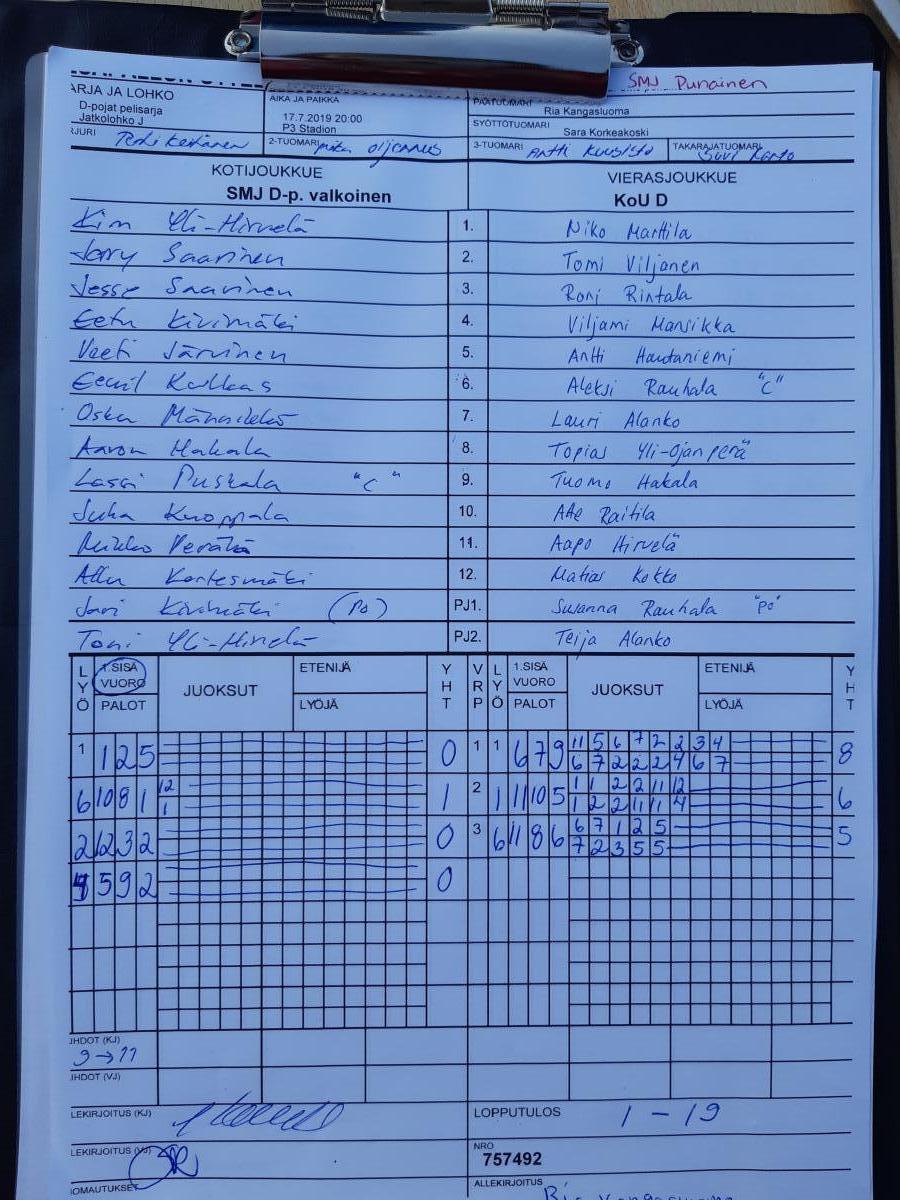 SMJ Punainen
ARJA JA LOHKO
D-pojat pelisarja
Jatkolohko J
AIKA JA PAIKKA
17.7.2019 20:00
P3 Stadion
PÄÄTUOMARI
Ria Kangasluoma
SYÖTTÖTUOMARI
Sara Korkeakoski
2-TUOMARI
3-TUOMARI Antti Kuusisto
TAKARAJATUOMARI
KOTIJOUKKUE
SMJ D-p. valkoinen
VIERASJOUKKUE
KoU D
Kim Yli-Hirvelä 1. Niko Marttila
Jerry Saarinen 2. Tomi Viljanen
Jesse Saarinen 3. Roni Rintala
Eetu Kivimäki 4. Viljami Mansikka
Veeti Järvinen 5. Antti Hautaniemi
Eemil Kalkas 6. Aleksi Rauhala "C"
7. Lauri Alanko
Aaron Hakala 8. Topias Yli-Ojanperä
Lassi Puskala "C" 9. Tuomo Hakala
Juha Kuoppala 10. Atte Raitila
Mikko Perälä 11. Aapo Hirvelä
Allu Kortesmäki 12. Matias Kokko
Jari Kivimäki (PO) PJ1. Susanna Rauhala "PO"
Toni Yli-Hirvelä PJ2. Teija Alanko
LYÖ 1.SISÄ VUORO PALOT JUOKSUT ETENIJÄ LYÖJÄ YHT VRP LYÖ 1.SISÄ VUORO PALOT JUOKSUT ETENIJÄ LYÖJÄ YHT
1 1 2 5 0 1 1 6 7 9 11 5 6 7 2 2 3 4 8
6 7 2 2 2 4 6 7
6 10 8 1 12 1 2 1 11 10 5 1 1 2 2 11 12 6
1 1 2 2 11 11 4
2 12 3 2 0 3 6 11 8 6 6 7 1 2 5 5
7 2 3 5 5
4 5 9 2 0
IHDOT (KJ)
9→11
IHDOT (VJ)
LEKIRJOITUS (KJ)
LOPPUTULOS 1 - 19
LEKIRJOITUS (VJ)
NRO
757492
OMAUTUKSET
ALLEKIRJOITUS
Ria Kangasluoma